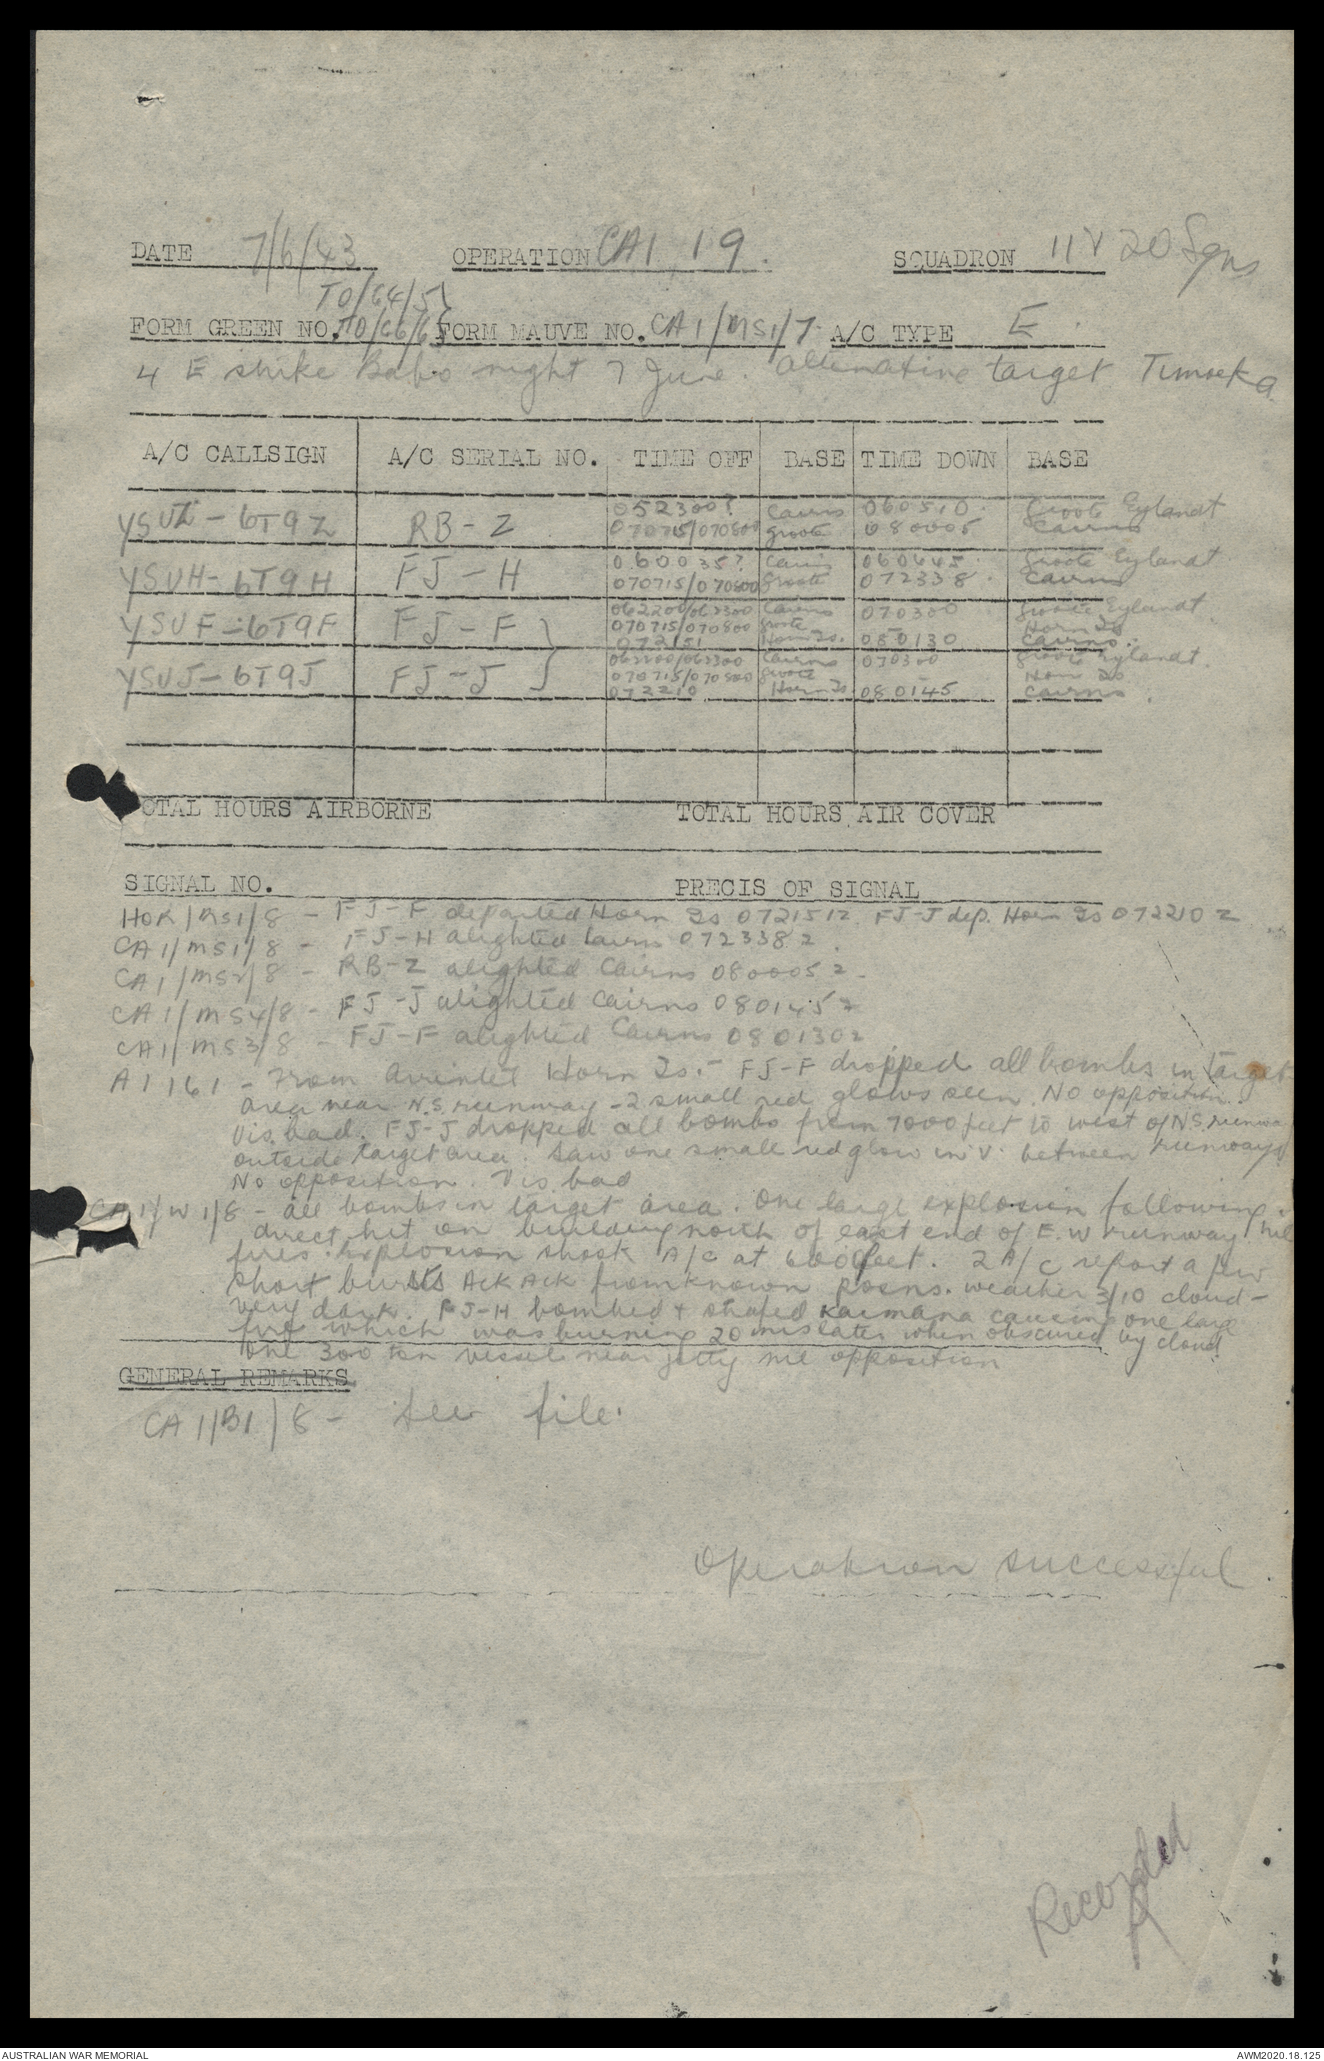 DATE 7/6/43 OPERATION CA1 19. SQUADRON 11 & 20 Sqns
TO/64/5
FORM GREEN NO. TO/66/6 FORM MAUVE NO. CA1/MS1/7. A/C TYPE E.
4 E strike Babo night 7 June. alternative target Timoeka
A/C CALLSIGN A/C SERIAL NO. TIME OFF BASE TIME DOWN BASE
052300? Cairns 060510. Groote Eylandt
YSUZ - 6T9Z RB-Z 070715/070800 Groote 080005 Cairns
060035? Cairns 060645. Groote Eylandt
YSUH - 6T9H FJ-H 070715/070800 Groote 072338. Cairns
062200/062300 Cairns 070300 Groote Eylandt
YSUF - 6T9F FJ-F } 070715/070800 Groote - Horn Is
072151 Horn Is. 080130 Cairns.
062200/062300 Cairns 070300 Groote Eylandt.
YSUJ - 6T9J FJ-J 070715/070800 Groote - Horn Is
072210 Horn Is 080145 Cairns.
TOTAL HOURS AIRBORNE TOTAL HOURS AIR COVER
SIGNAL NO. PRECIS OF SIGNAL
HOR/MS1/8 - FJ-F departed Horn Is 072151Z. FJ-J dep. Horn Is 072210Z
CA1/MS1/8 - FJ-H alighted Cairns 072338Z.
CA1/MS2/8 - RB-Z alighted Cairns 080005Z.
CA1/MS4/8 - FJ-J alighted Cairns 080145Z
CA1/MS3/8 - FJ-F alighted Cairns 080130Z
A1161 - From Horn Is. - FJ-F dropped all bombs in target
area near N.S. runway - 2 small red glows seen. No opposition.
Vis. bad. FJ-J dropped all bombs from 7000 feet to west of N.S. runway
outside target area. Saw one small red glow in V. between runways.
No opposition. Vis. bad
CA1/W1/8 - all bombs in target area. One large explosion following
direct hit on building north of east end of E.W runway nil
fires. Explosion shook A/C at 6000 feet. 2 A/C report a few
short bursts Ack Ack from known posns. weather 3/10 cloud -
very dark. FJ-H bombed & strafed Kaimana causing one large
fire which was burning 20 mins later when obscured by cloud.
One 300 ton vessel near jetty nil opposition
GENERAL REMARKS
CA1/B1/8 - See file.
Operation successful.
Recorded
AUSTRALIAN WAR MEMORIAL AWM2020.18.125